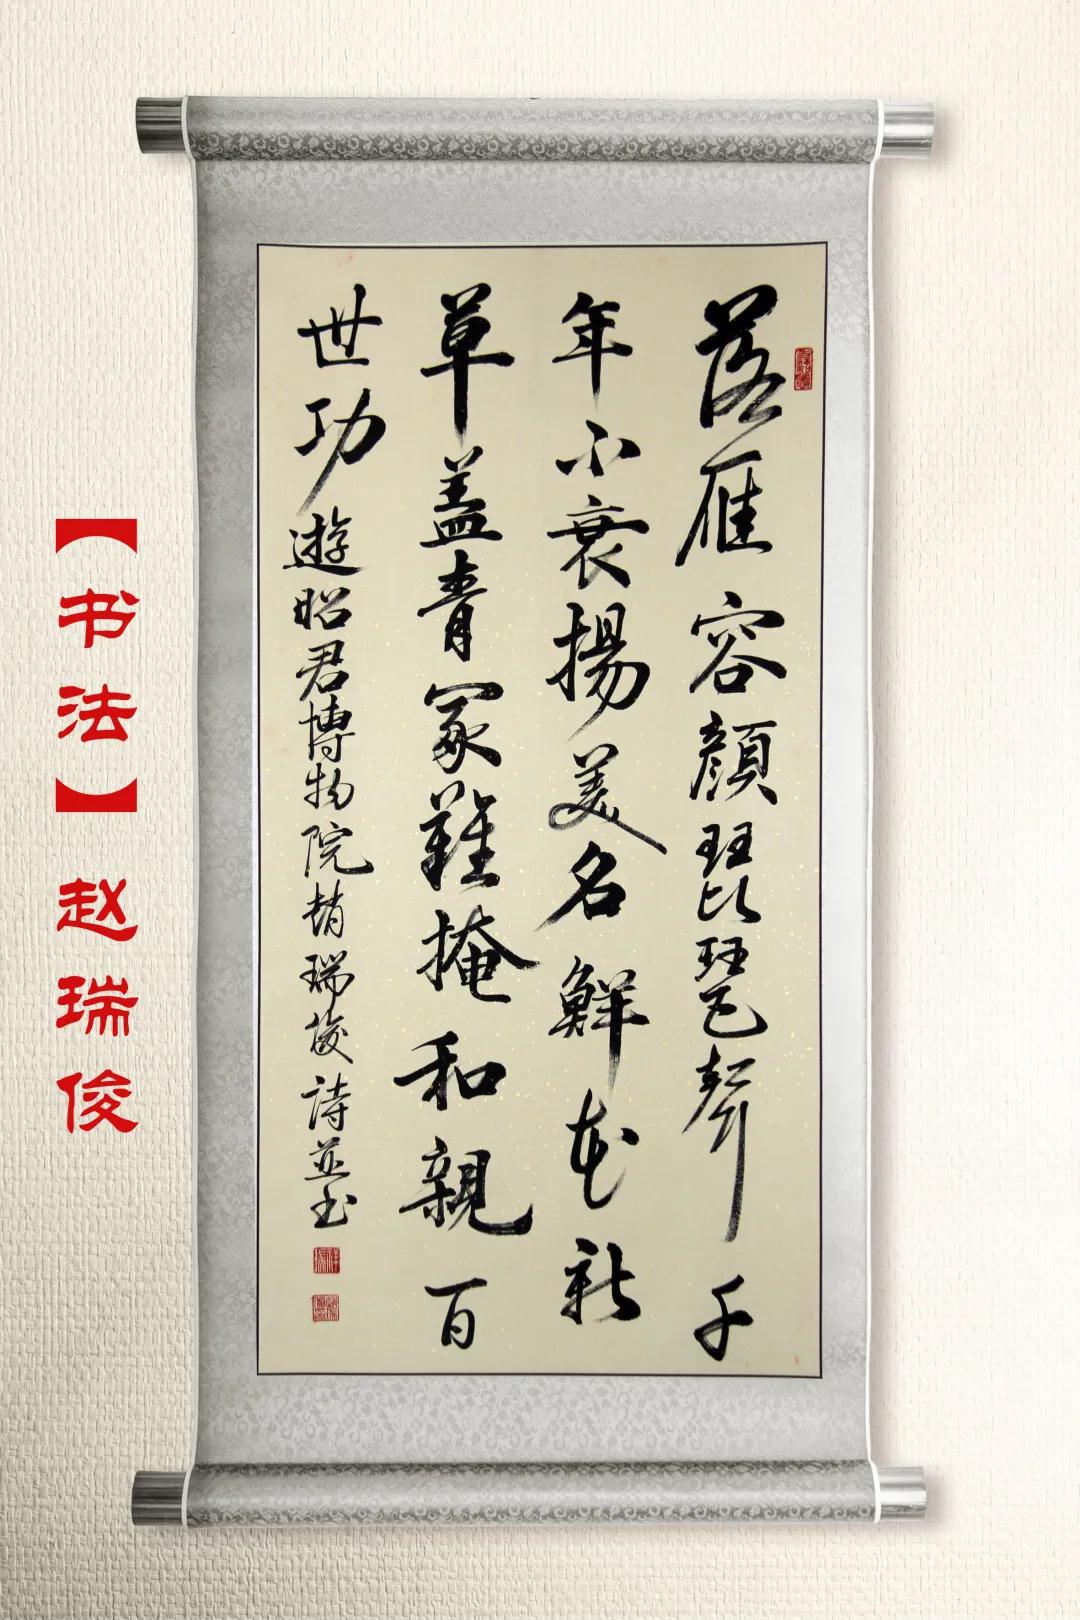 落雁容顏琵琶聲千
年不衰揚美名鮮花新
草蓋青冢難掩和親百
世功
遊昭君博物院趙瑞俊詩並书
【书法】赵瑞俊